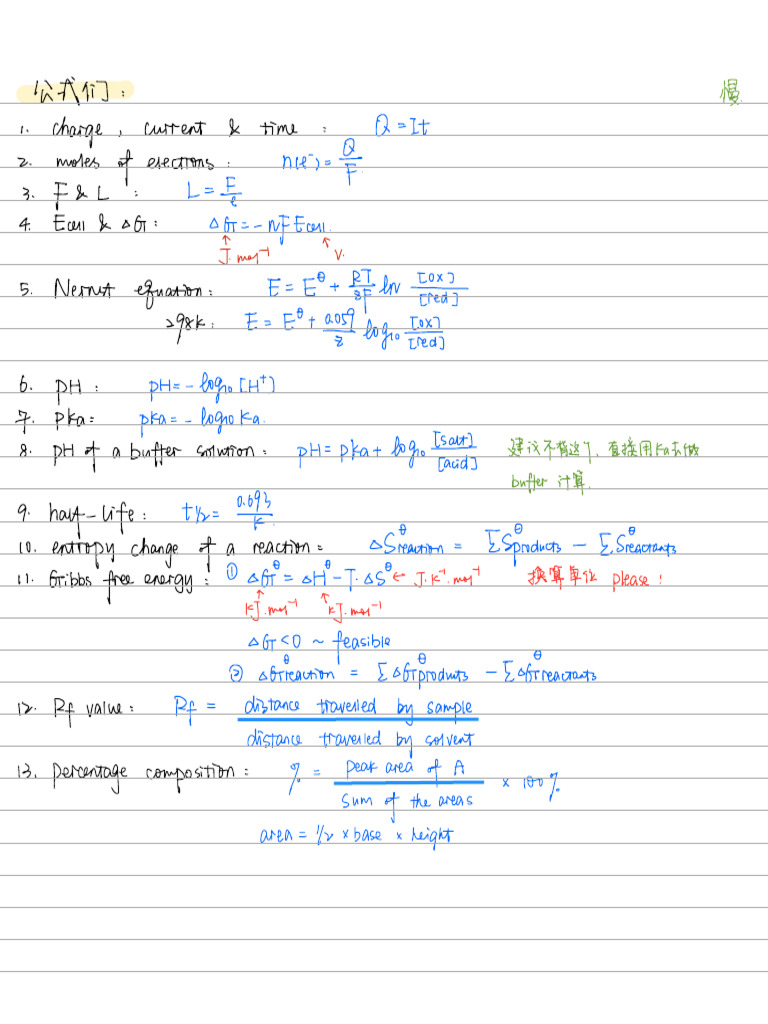 公式们：
慢
1. charge, current & time : Q = It
2. moles of electrons : n(e⁻) = Q/F
3. F & L : L = F/e
4. Ecell & △G : △G = -nFEcell.
J·mol⁻¹ V.
5. Nernst equation : E = E^θ + RT/zF ln [ox]/[red]
298k : E = E^θ + 0.059/z log₁₀ [ox]/[red]
6. pH : pH = -log₁₀[H⁺]
7. Pka : pka = -log₁₀Ka.
8. pH of a buffer solution : pH = pka + log₁₀ [salt]/[acid] 建议不背这个，直接用Ka去做
buffer 计算.
9. half-life : t½ = 0.693/k.
10. entropy change of a reaction : △S^θreaction = ΣS^θproducts - ΣS^θreactants
11. Gibbs free energy : ① △G^θ = △H^θ - T·△S^θ ← J·k⁻¹·mol⁻¹ 换算单位 please!
kJ·mol⁻¹ kJ·mol⁻¹
△G<0 ~ feasible
② △G^θreaction = Σ△G^θproducts - Σ△G^θreactants
12. Rf value : Rf = distance travelled by sample
distance travelled by solvent
13. percentage compostion : % = peak area of A × 100%
sum of the areas
area = ½ × base × height